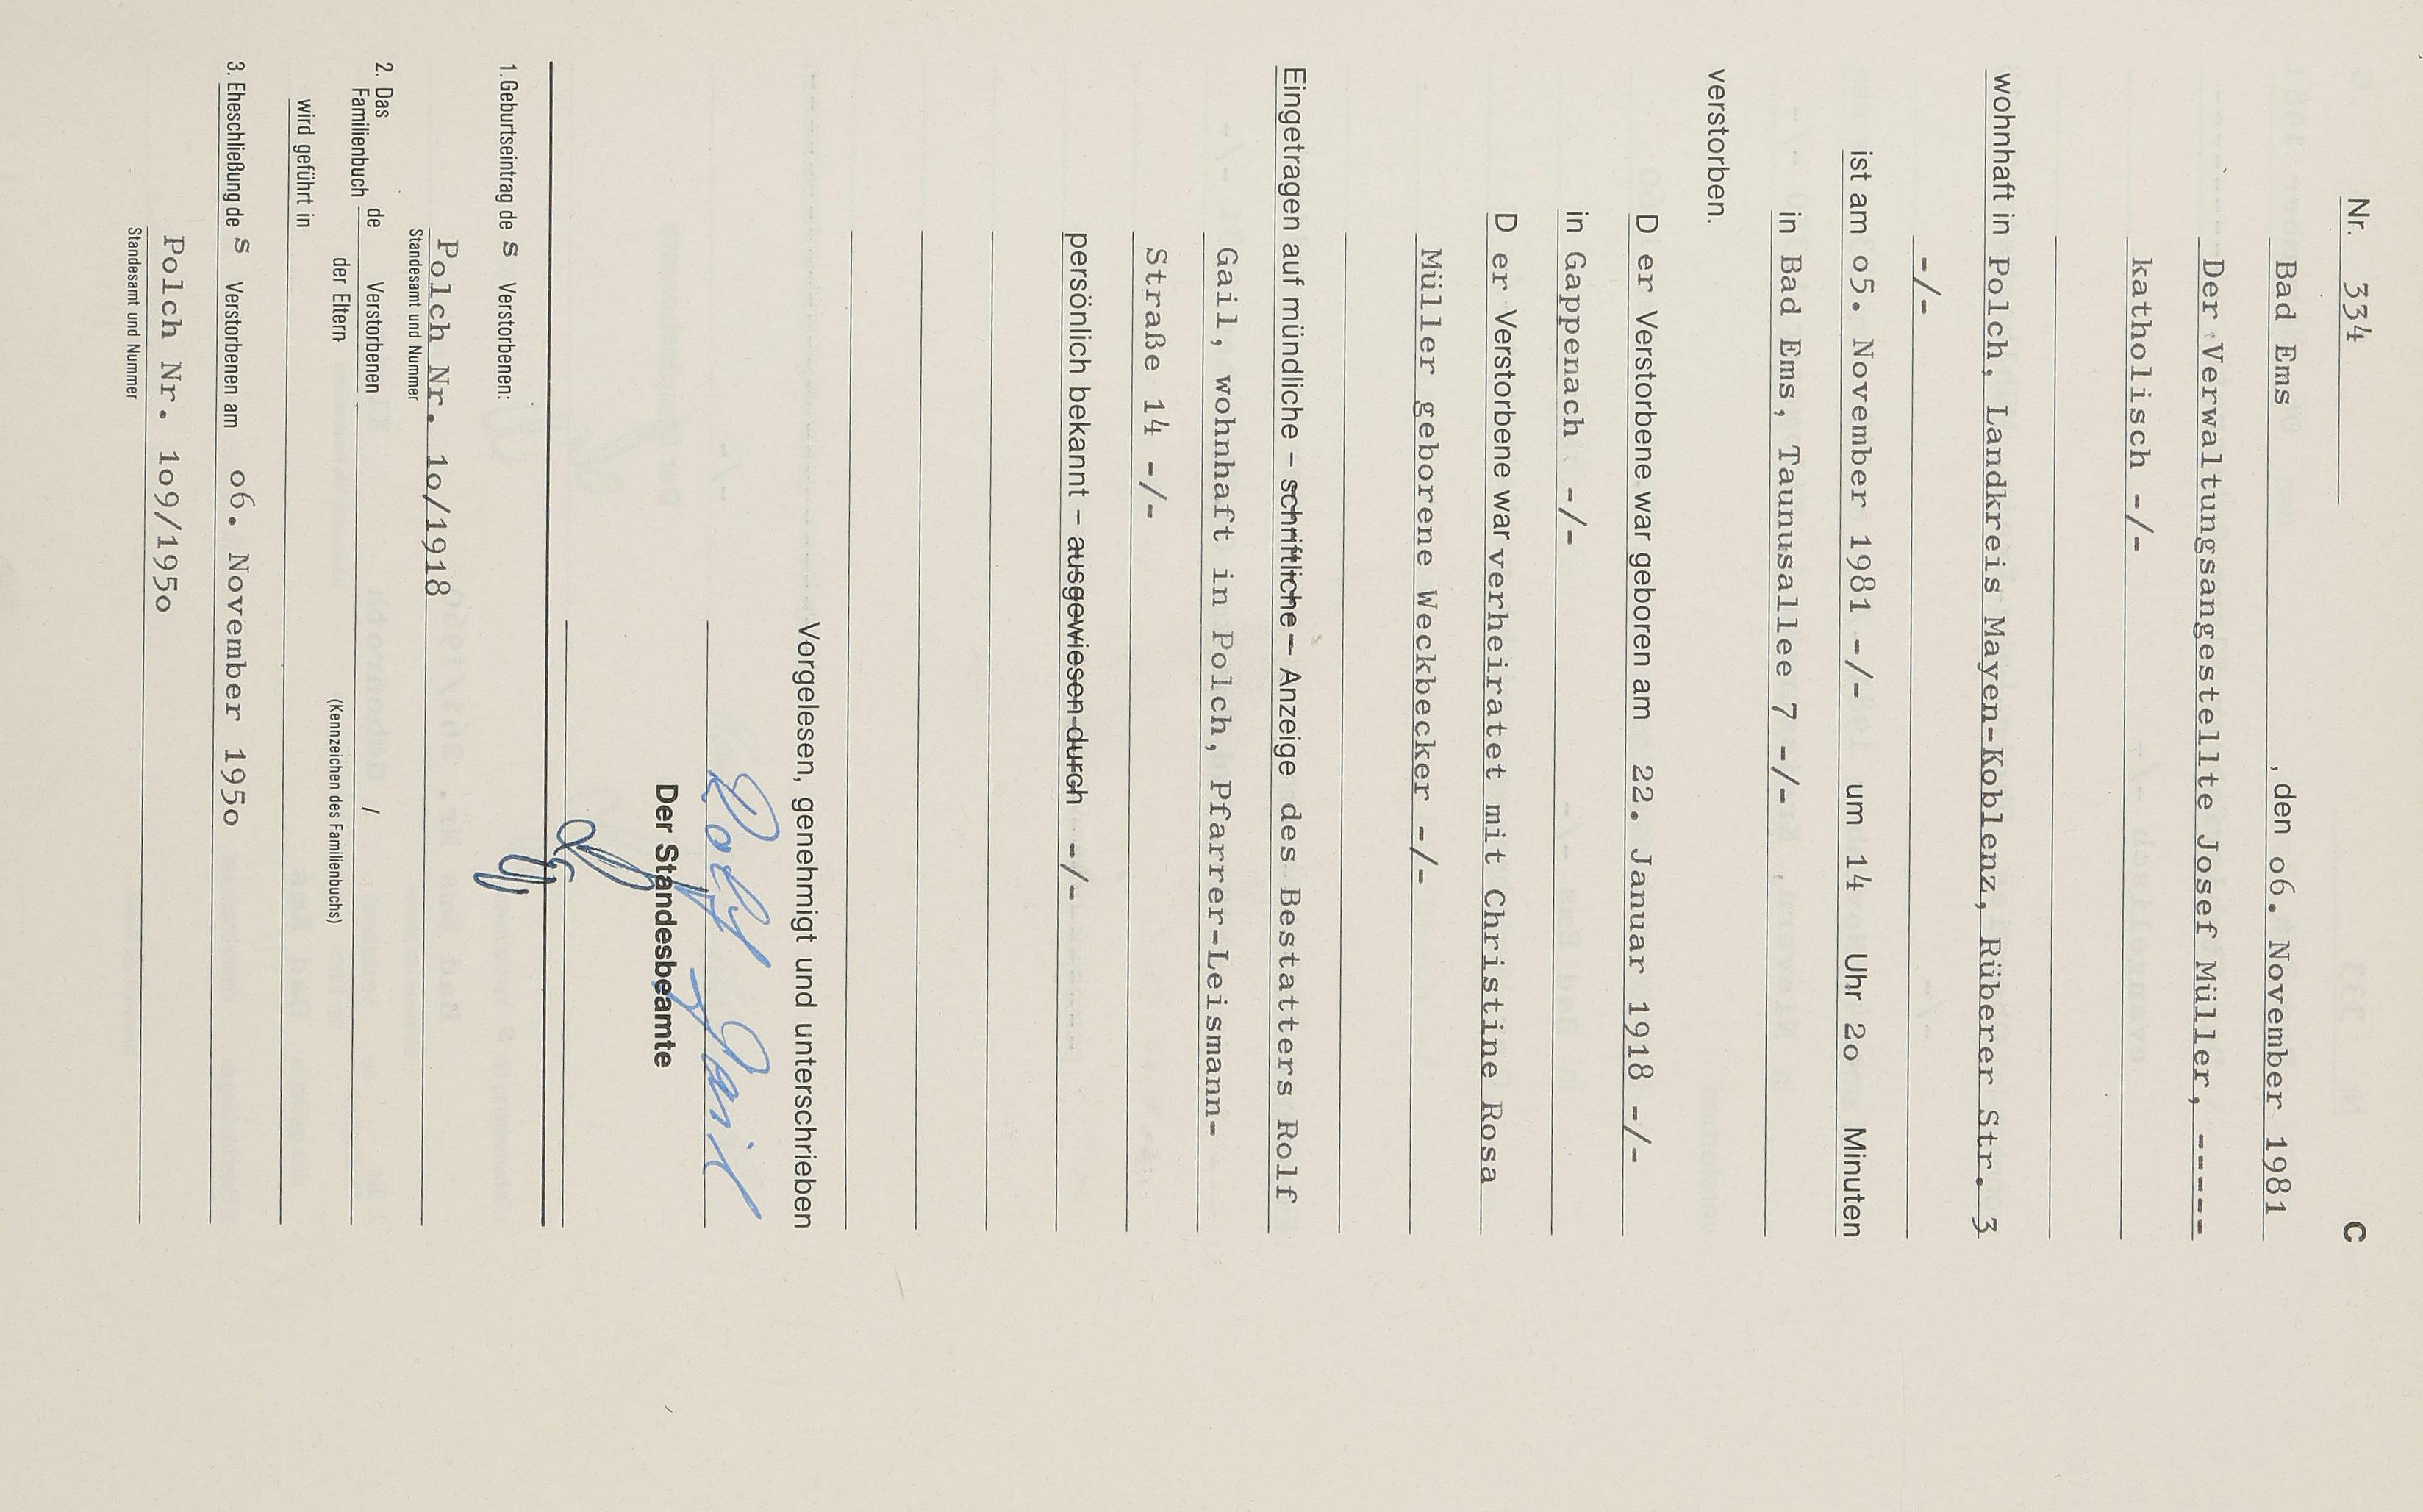 Nr. 334 C
Bad Ems , den o6. November 1981
Der Verwaltungsangestellte Josef Müller, -----
katholisch -/-
wohnhaft in Polch, Landkreis Mayen-Koblenz, Rüberer Str. 3
-/-
ist am o5. November 1981 -/- um 14 Uhr 2o Minuten
in Bad Ems, Taunusallee 7 -/-
verstorben.
D er Verstorbene war geboren am 22. Januar 1918 -/-
in Gappenach -/-
D er Verstorbene war verheiratet mit Christine Rosa
Müller geborene Weckbecker -/-
Eingetragen auf mündliche – schriftliche – Anzeige des Bestatters Rolf
Gail, wohnhaft in Polch, Pfarrer-Leismann-
Straße 14 -/-
persönlich bekannt – ausgewiesen durch -/-
Vorgelesen, genehmigt und unterschrieben
Rolf Gail
Der Standesbeamte
1. Geburtseintrag de s Verstorbenen:
Polch Nr. 1o/1918
Standesamt und Nummer
2. Das Familienbuch de Verstorbenen /
der Eltern (Kennzeichen des Familienbuchs)
wird geführt in
3. Eheschließung de s Verstorbenen am o6. November 195o
Polch Nr. 1o9/195o
Standesamt und Nummer